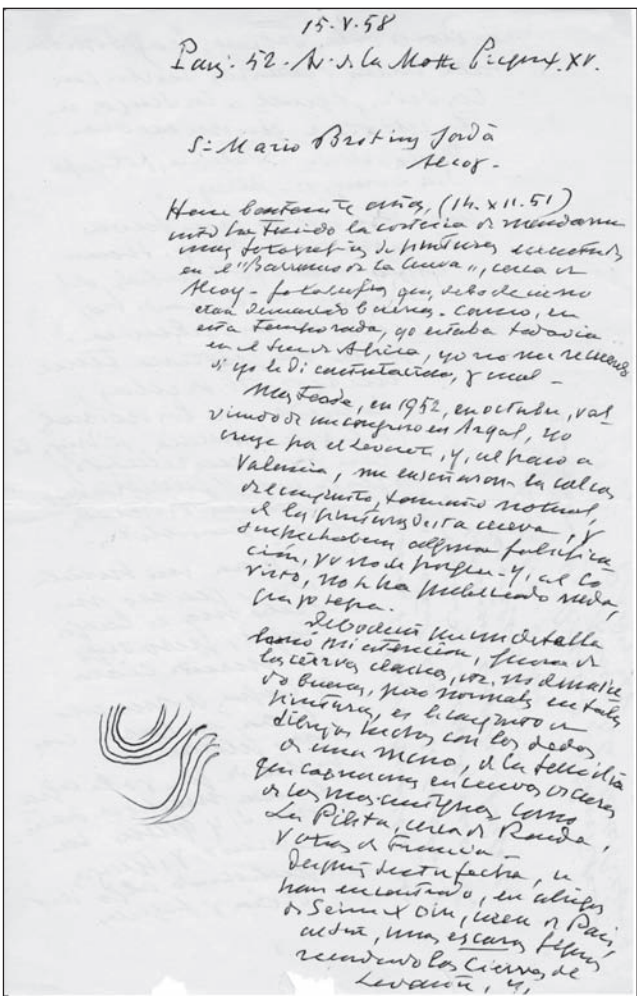 15-V-58
Paris. 52. Av. de la Motte Picquet. XV.
Sr. Mario Brotons Jordà
Alcoy-
Hace bastante años, (14. XII. 51)
Vd ha tenido la cortesia de mandarme
unas fotografias de pinturas
en el "Barranco de la Cueva", cerca de
Alcoy - fotografias, que, debo decir no
eran demasiado buenas. Como, en
esta temporada, yo estaba todavia
en el Sur de Africa, yo no me recuerdo
si yo le di contestación, y cual -
Mas tarde, en 1952, en octubre, vol
viendo de un congreso en Argel, yo
por el Levante, y, al paso a
Valencia, me enseñaron los calcos
del conjunto, tamaño normal,
de las pinturas de esta cueva, y
sospechaban alguna falsifica
ción, yo no sé porque - y, al
visto, no se ha publicado nada,
que yo sepa.
Debo decir que un detalle
llamó mi atención, fuera de
los ciervos clasicos, no demasia
do buenos, pero normales en tales
pinturas, es el conjunto de
dibujos hechos con los dedos
de una mano, de la
que en cuevas oscuras
de las mas antiguas, como
La Pileta, cerca de Ronda,
y otras de Francia -
Después de esta fecha, se
han encontrado, en abrigos
de Seine et Oise, cerca de Paris,
unas escasas figuras
recordando los Ciervos de
Levante, y,